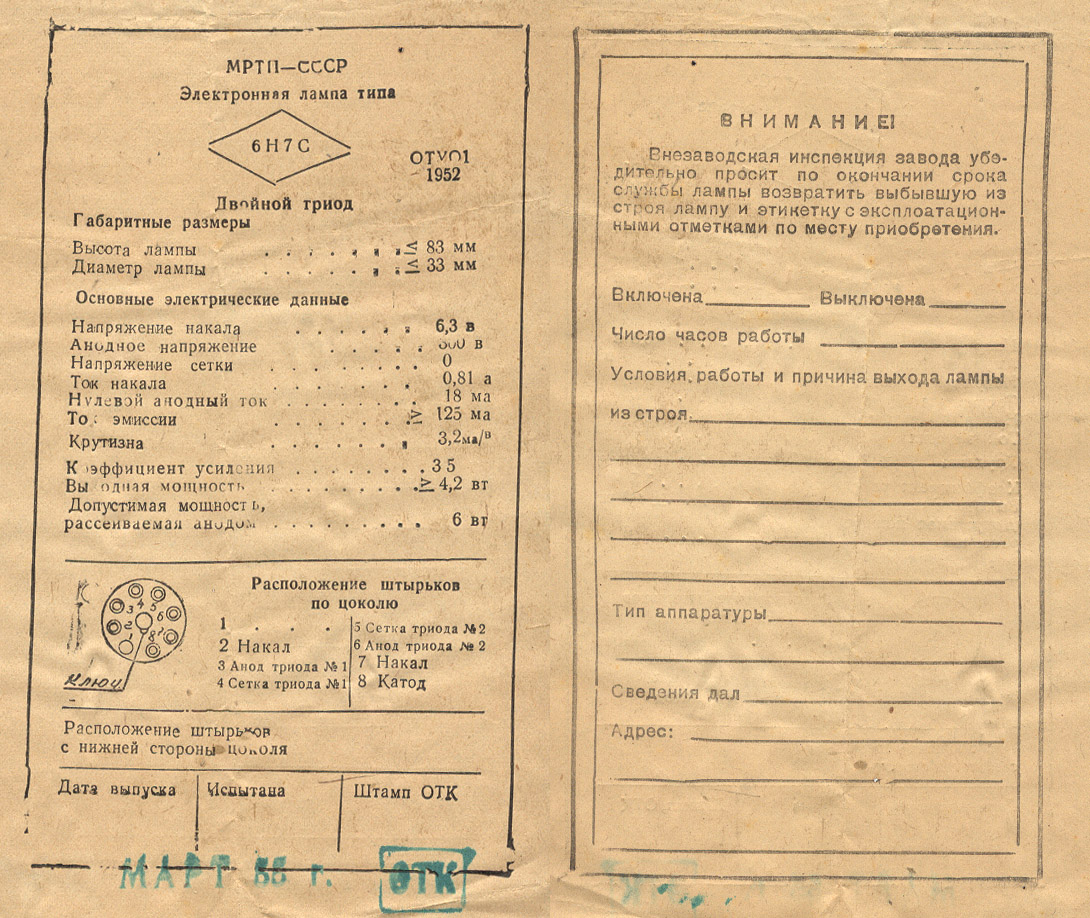 МРТП—СССР
Электронная лампа типа
6Н7С
ОТУ01
1952
Двойной триод
Габаритные размеры
Высота лампы . . . . . . . ≤ 83 мм
Диаметр лампы . . . . . . . ≤ 33 мм
Основные электрические данные
Напряжение накала . . . . . . . 6,3 в
Анодное напряжение . . . . . 300 в
Напряжение сетки . . . . . . . . 0
Ток накала . . . . . . . 0,81 а
Нулевой анодный ток . . . . . . . 18 ма
Ток эмиссии . . . . . . . ≥ 125 ма
Крутизна . . . . . . . 3,2 ма/в
Коэффициент усиления . . . . . . . . 35
Выходная мощность . . . . . . . . . ≥ 4,2 вт
Допустимая мощность,
рассеиваемая анодом . . . . . . . . . 6 вт
Расположение штырьков
по цоколю
1 . . . .
2 Накал
3 Анод триода №1
4 Сетка триода №1
5 Сетка триода №2
6 Анод триода № 2
7 Накал
8 Катод
1 2 3 4 5 6 7 8
Ключ
Расположение штырьков
с нижней стороны цоколя
Дата выпуска Испытана Штамп ОТК
МАРТ 55 г. ОТК
ВНИМАНИЕ!
Внезаводская инспекция завода убе-
дительно просит по окончании срока
службы лампы возвратить выбывшую из
строя лампу и этикетку с эксплоатацион-
ными отметками по месту приобретения.
Включена Выключена
Число часов работы
Условия работы и причина выхода лампы
из строя
Тип аппаратуры
Сведения дал
Адрес: